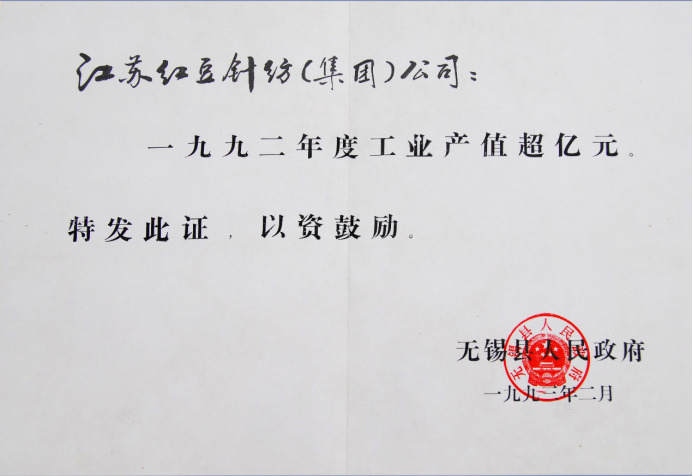 江苏红豆针纺(集团)公司：
一九九二年度工业产值超亿元。
特发此证，以资鼓励。
无锡县人民政府
无锡县人民政府
一九九三年二月